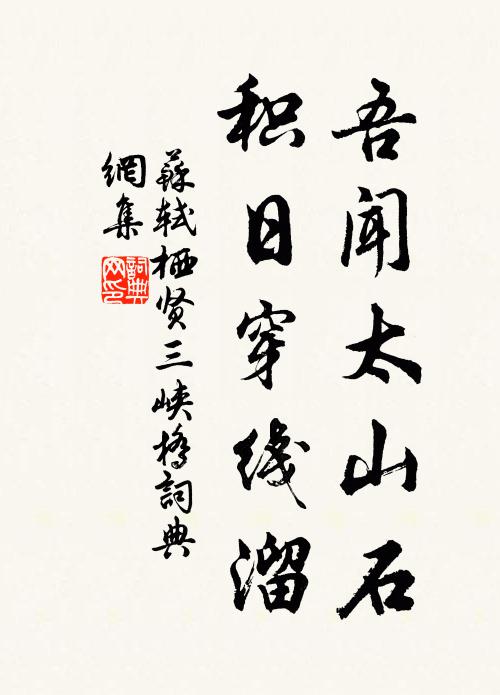 吾闻太山石
积日穿线溜
蘇轼栖贤三峡橋詞典
網集
詞典
网印